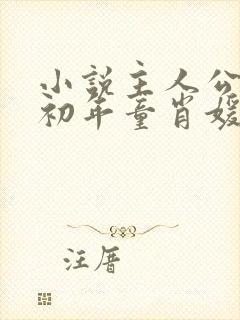 小说主人公
初年童肖媛
汪厝